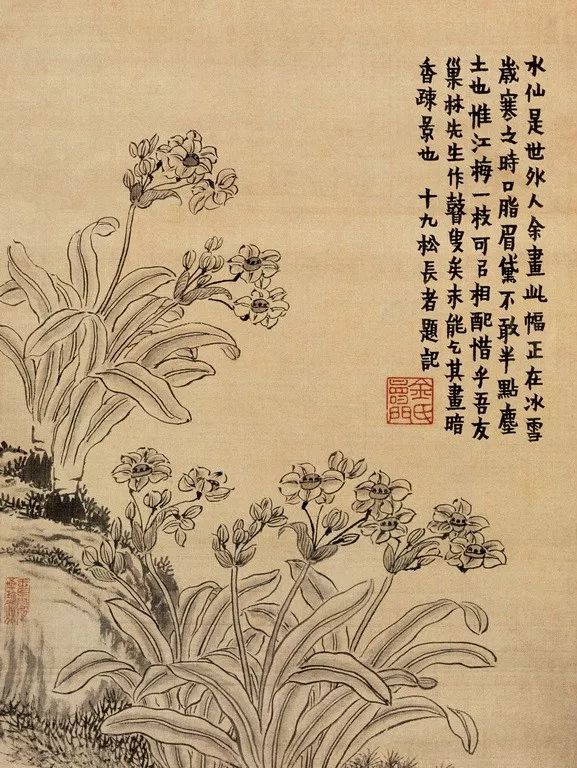 水仙是世外人余畫此幅正在冰雪
歲寒之時口脂眉黛不敢半點塵
土也惟江梅一枝可以相配惜乎吾友
巢林先生作瞽叟矣未能乞其畫暗
香疎景也　十九松長者題記
金氏